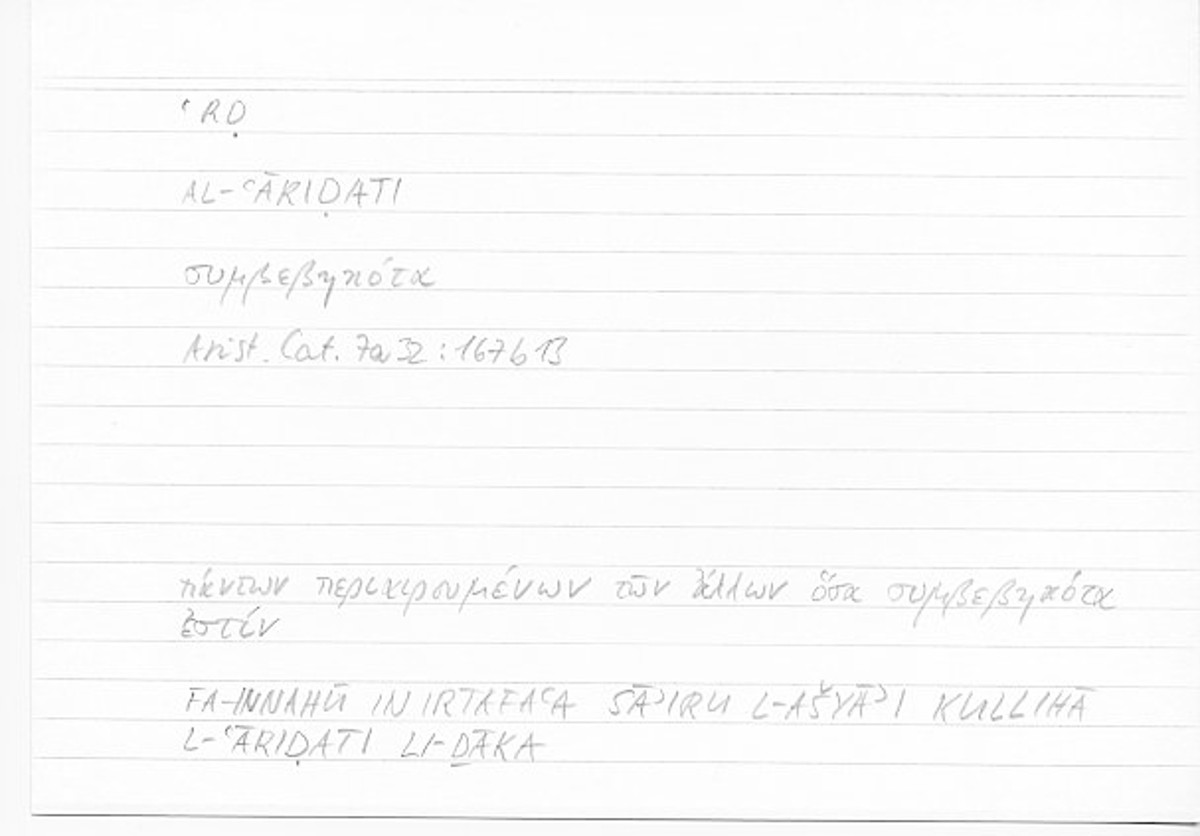 ʿRḌ
AL-ʿĀRIḌATI
συμβεβηκότα
Arist. Cat. 7a32 : 167b13
πάντων περιαιρουμένων τῶν ἄλλων ὅσα συμβεβηκότα
ἐστίν
FA-INNAHŪ IN IRTAFAʿA SĀʾIRU L-AŠYĀʾI KULLIHĀ
L-ʿĀRIḌATI LI-ḎĀKA